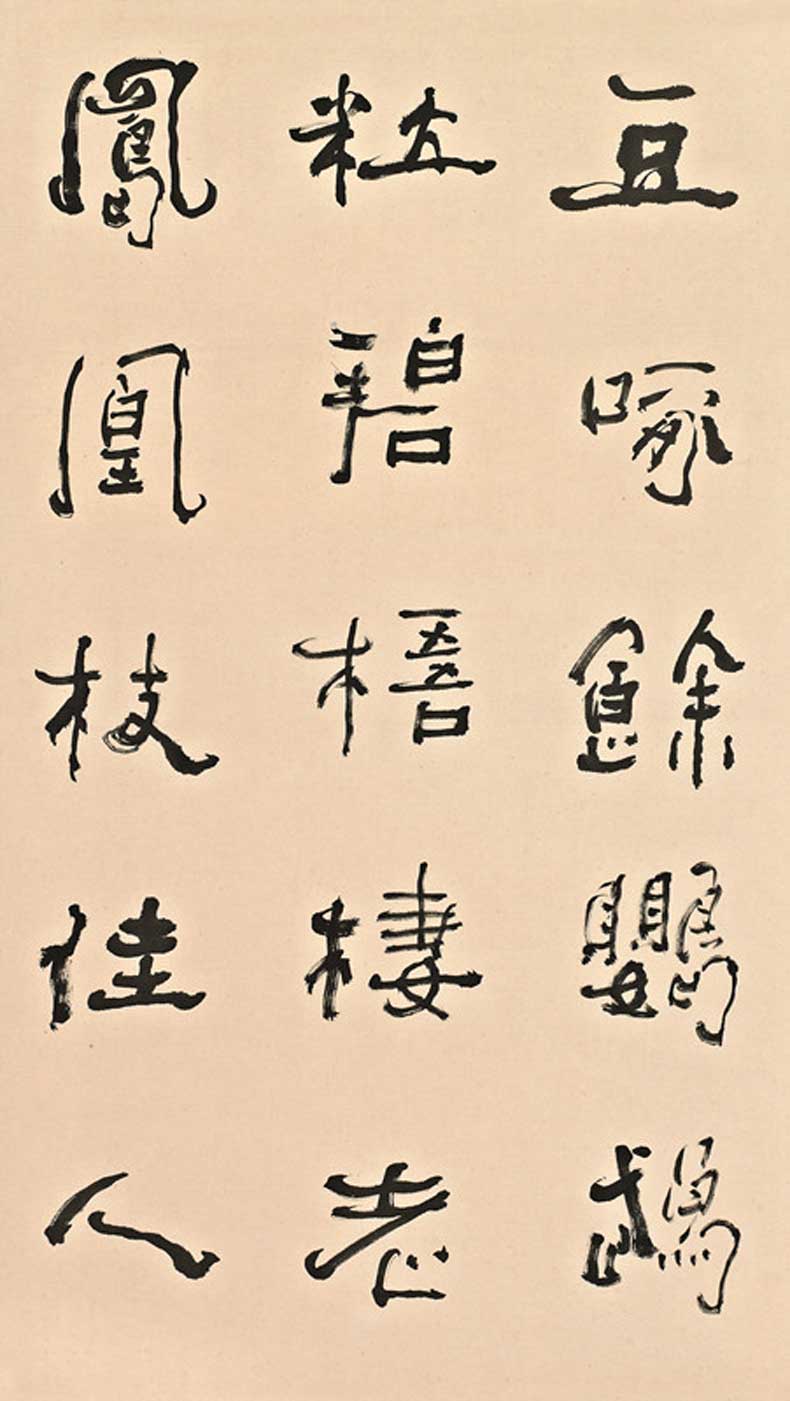 豆啄餘鸚鵡
粒碧梧棲老
鳳凰枝佳人